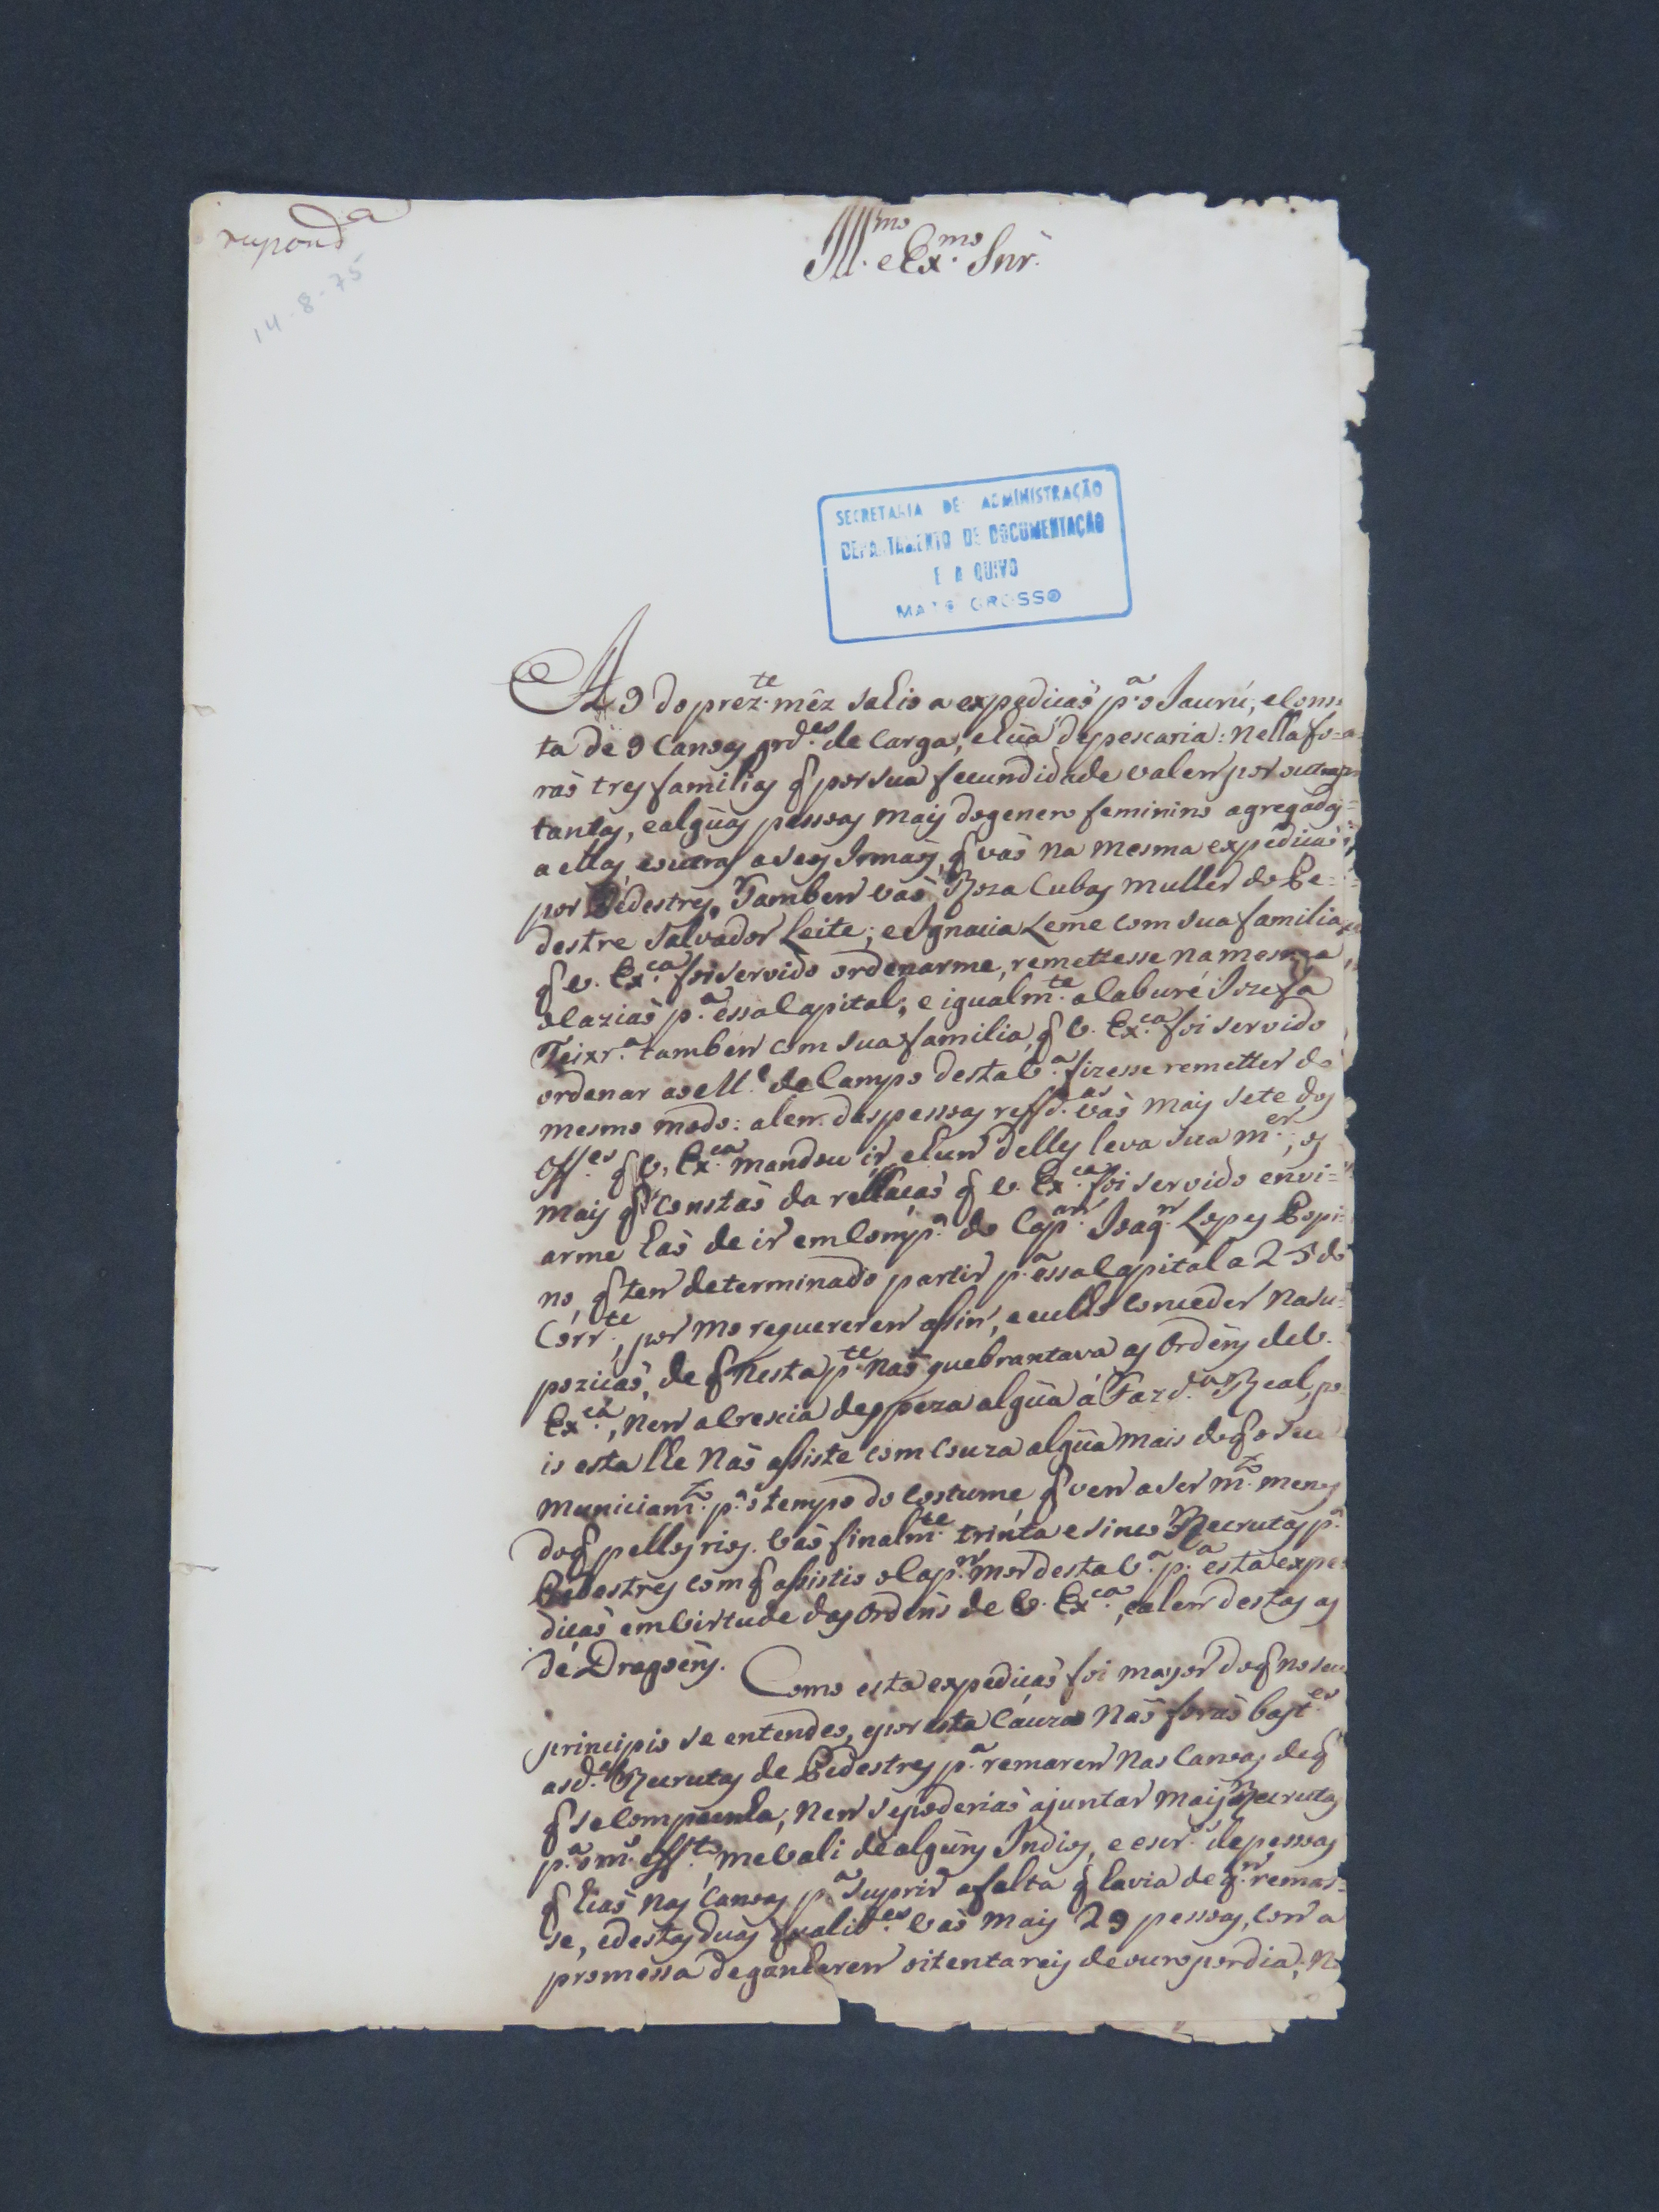 respond.ª
14-8-75
Ill.mo e Ex.mo Snr.
SECRETARIA DE ADMINISTRAÇÃO
DEPARTAMENTO DE DOCUMENTAÇÃO
E A QUIVO
MATO GROSSO
A 9 do prez.te mêz sahio a expedicaõ p.ª o Jaurú, e cons
ta de 9 canoas grd.es de carga, e hũa de pescaria: nella fo-
raõ tres familias q̃ por sua fecundidade valem por outras
tantas, e algũas pessoas mais do genero feminino agregadas
a ellas, e outras a seos Irmaõs, q̃ vaõ na mesma expedicaõ
por Pedestres. Tambem vaõ Roza Cubas mulher do Pe-
destre Salvador Leite; e Ignacia Leme com sua familia,
q̃ V. Ex.ca foi servido ordenarme, remettesse na mesma
ocaziaõ p.ª essa Capital; e igualm.te a Caburé Jozefa
Teixr.ª tambem com sua familia, q̃ V. Ex.ca foi servido
ordenar ao M.e de Campo desta V.ª fizesse remetter do
mesmo modo: alem das pessoas refd.as vaõ mais sete dos
Off.es q̃ V. Ex.ca mandou ir, e hum delles leva sua m.er; os
mais q̃ constaõ da rellacaõ q̃ V. Ex.ca foi servido envi-
arme haõ de ir em comp.ª do Cap.am Joaq.m Lopes Popi-
no, q̃ tem determinado partir p.ª essa Capital a 25 do
Corr.te, por mo requererem assim, e eu lho conceder na su-
pozicaõ, de q̃ nesta p.te naõ quebrantava as ordens de V.
Ex.ca, nem acrescia despeza algũa á Fazd.ª Real, po-
is esta lhe naõ assiste com couza algũa mais do q̃ o seu
municiam.to p.ª o tempo do costume q̃ vem a ser m.to menos
do q̃ pellos rios. Vaõ finalm.te trinta e sinco Recrutas p.ª
Pedestres com q̃ assistio o Cap.m mor desta V.ª p.ª esta expe-
dicaõ em virtude das ordens de V. Ex.ca, e alem destas as
de Dragoens.
Como esta expedicaõ foi mayor do q̃ no seu
principio se entendeo, e por esta cauza naõ foraõ bast.es
as d.as Recrutas de Pedestres p.ª remarem nas canoas de q̃
q̃ se compunha, nem se poderiaõ ajuntar mais Recrutas
p.ª o m.mo eff.to, me vali de alguns Indios, e escr.os de pessoas
q̃ hiaõ nas canoas p.ª suprir a falta q̃ havia de q.m remas-
se, e destas duas qualid.es vaõ mais 29 pessoas, com a
promessa de ganharem oitenta reis de ouro por dia; n